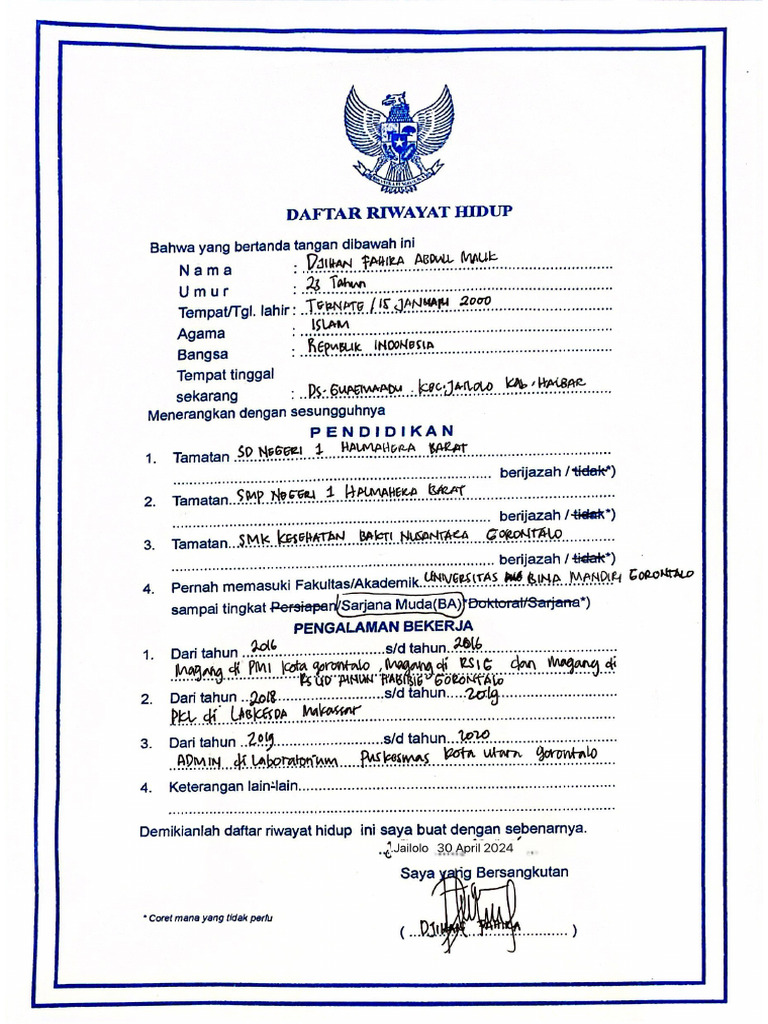 DAFTAR RIWAYAT HIDUP
Bahwa yang bertanda tangan dibawah ini
Nama : DJIHAN FAHIRA ABDULL MALIK
Umur : 23 Tahun
Tempat/Tgl. lahir : TERNATE / 15 JANUARI 2000
Agama : ISLAM
Bangsa : REPUBLIK INDONESIA
Tempat tinggal
sekarang : DS. GUAEMAADU KEC. JAILOLO KAB. HALBAR
Menerangkan dengan sesungguhnya
PENDIDIKAN
1. Tamatan SD NEGERI 1 HALMAHERA BARAT
berijazah / tidak*)
2. Tamatan SMP NEGERI 1 HALMAHERA BARAT
berijazah / tidak*)
3. Tamatan SMK KESEHATAN BAKTI NUSANTARA GORONTALO
berijazah / tidak*)
4. Pernah memasuki Fakultas/Akademik UNIVERSITAS BINA MANDIRI GORONTALO
sampai tingkat Persiapan/Sarjana Muda(BA)*Doktoral/Sarjana*)
PENGALAMAN BEKERJA
1. Dari tahun 2016 s/d tahun 2016
Magang di PMI Kota gorontalo, Magang di RSIG dan magang di
RSUD AINUN HABIBIE GORONTALO
2. Dari tahun 2018 s/d tahun 2019
PKL di LABKESDA Makassar
3. Dari tahun 2019 s/d tahun 2020
ADMIN di Laboratorium Puskesmas Kota utara gorontalo
4. Keterangan lain-lain
Demikianlah daftar riwayat hidup ini saya buat dengan sebenarnya.
Jailolo 30 April 2024
Saya yang Bersangkutan
( DJIHAN FAHIRA )
* Coret mana yang tidak perlu